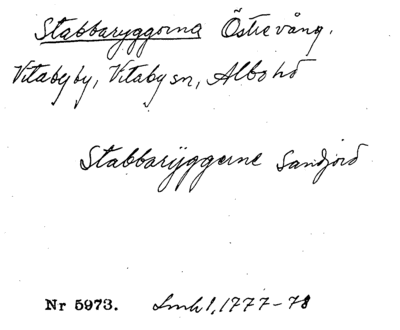 Stabbaryggorna Östrevång.
Vitabyby, Vitaby sn, Albo hd
Stabbarÿggerne Sandjord
Nr 5973. Lmh 1, 1777-78